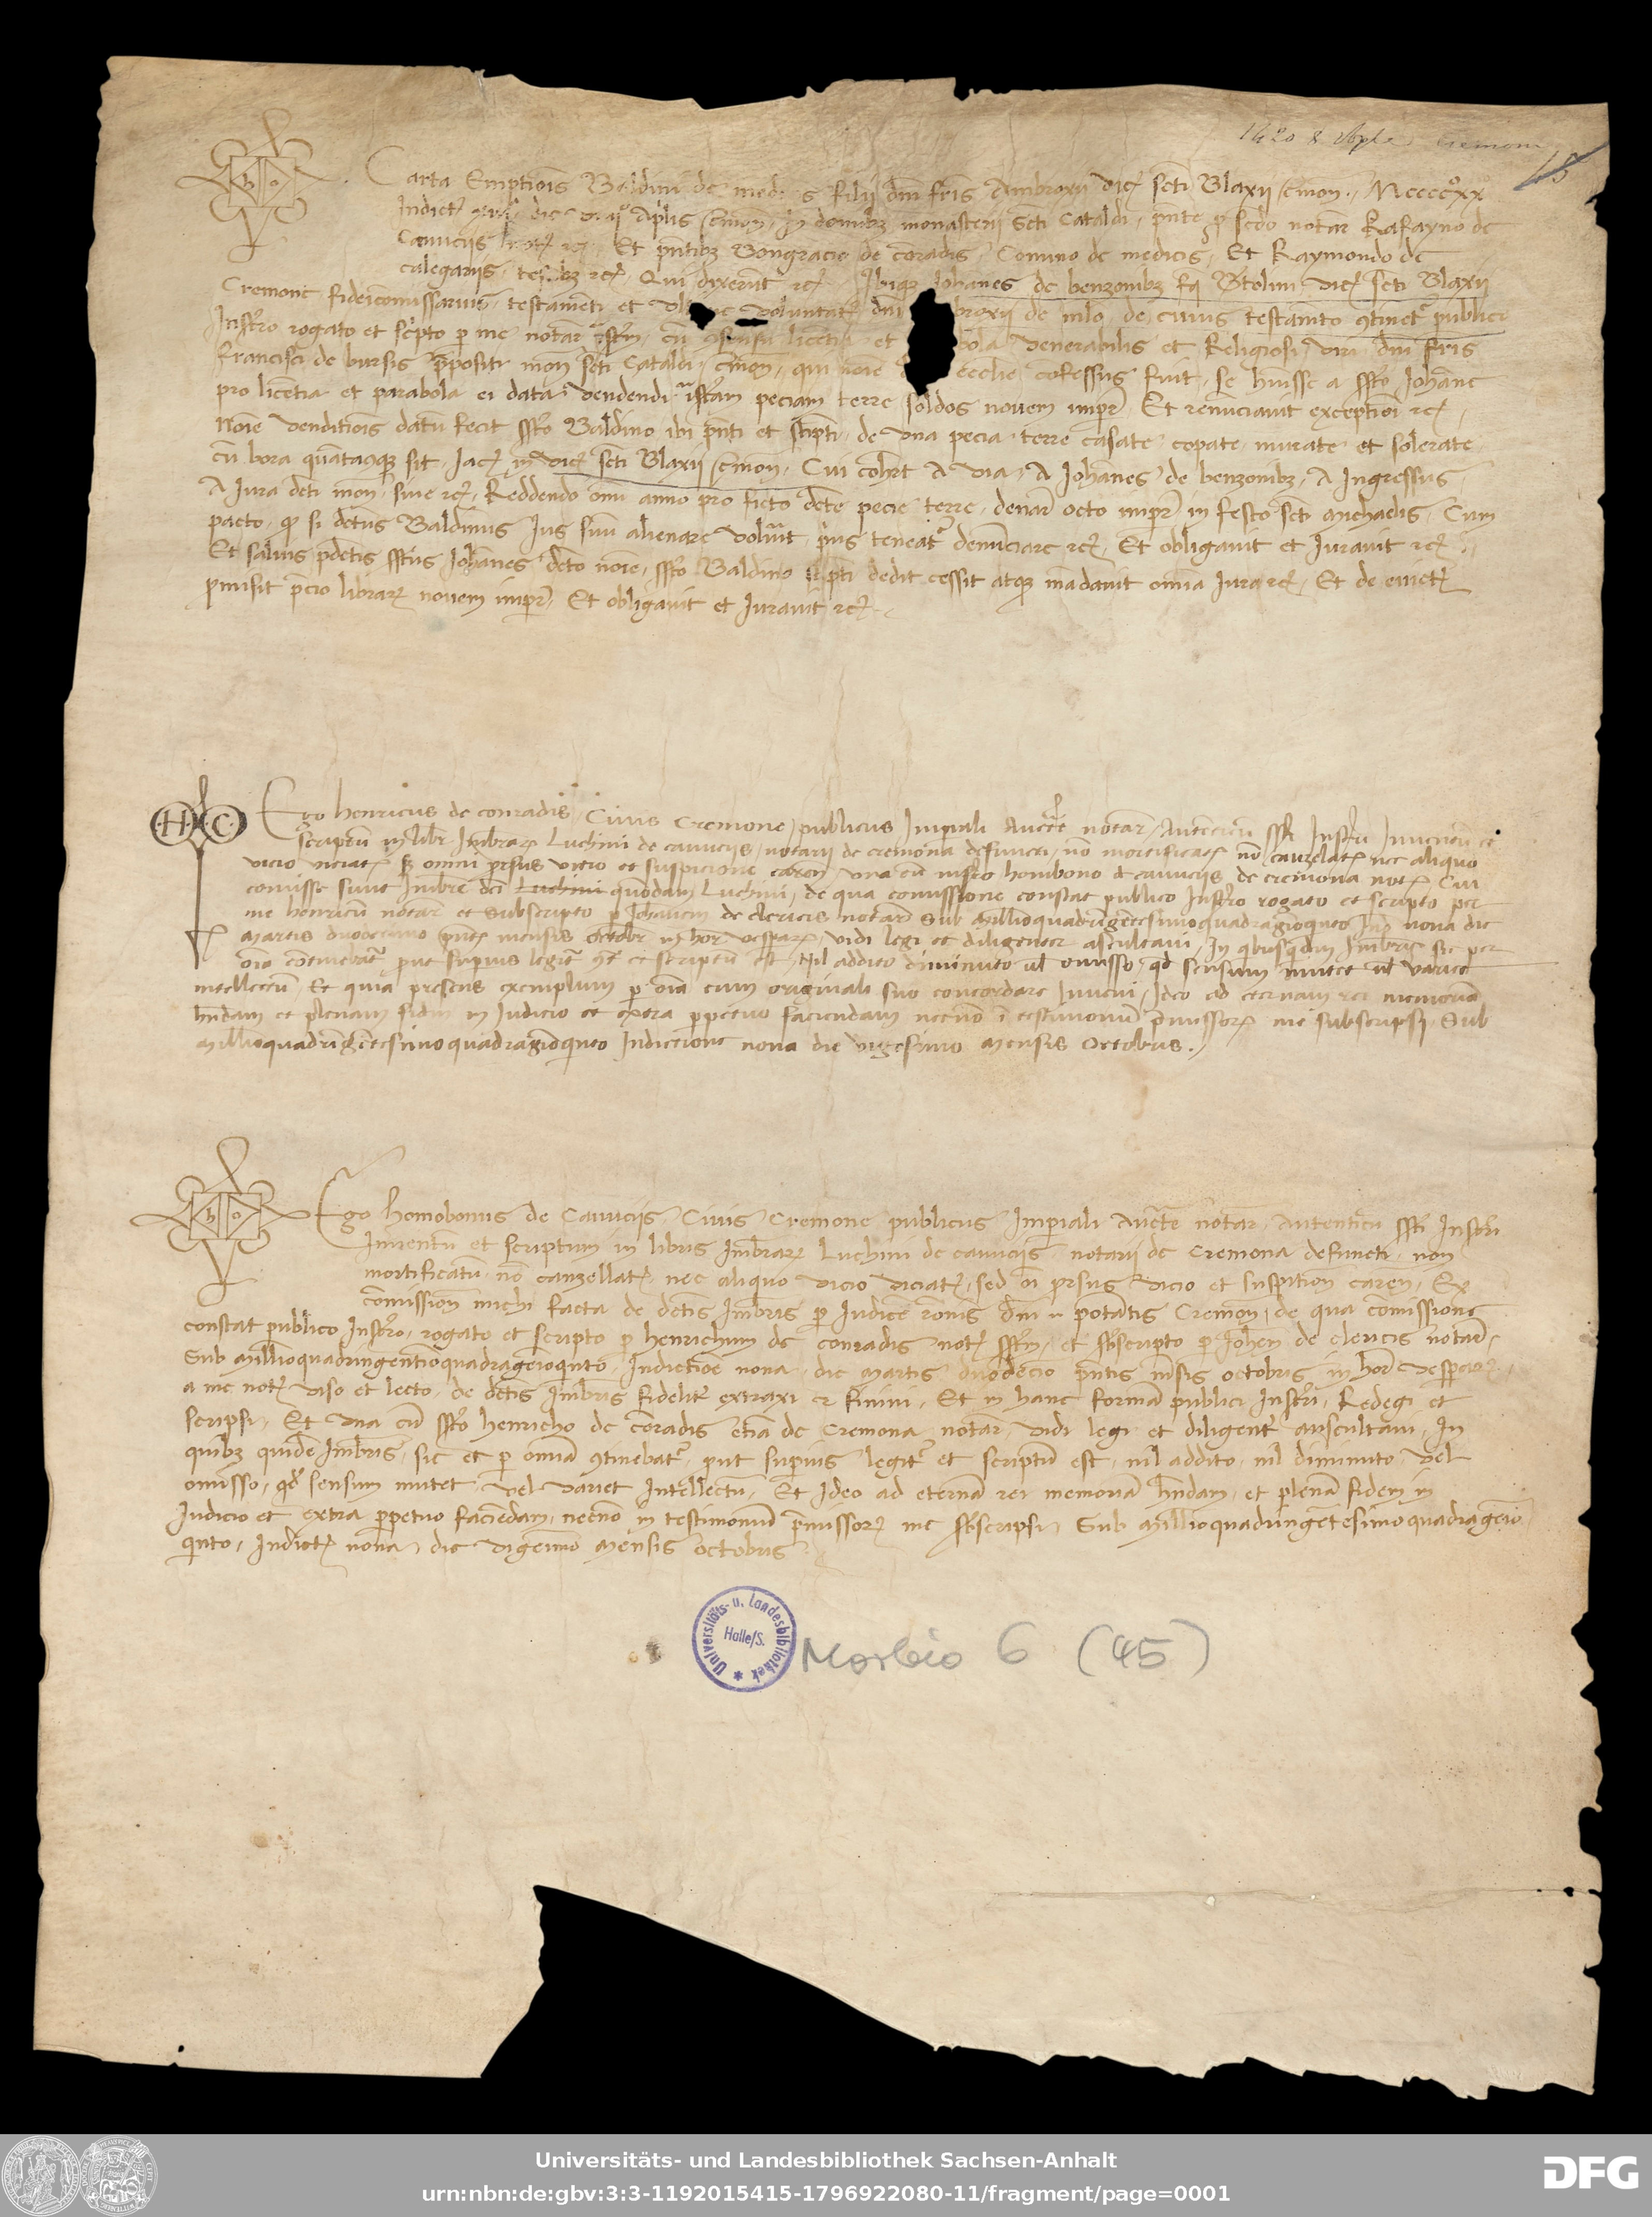 1420 8 Cremona
45
Carta Emptiois Baldini de filii dni fris Ambroxii vic scti Blaxii Cremon. Mccccxx
Indict die aplis Cremon in domibz monasterii Scti Cataldi pnte p scdo notar Rafayno de
Cauuciis not rc Et pntibz Bongracio de coradis Comino de medicis Et Raymondo de
calegariis testibz rc Qui dixerut rc Ibiqz Johanes de benzonibz fq Btolini vic scti Blaxii
Cremone fideicomissarius testameti et voluntat dni broxii de mlo de cuius testamto 9tinet publico
Instro rogato et scpto p me notar istm cu licetia et bola venerabilis et Religiosi viri dni fris
francisci de bursis ppositi mon scti Cataldi Cremon qui noie ecclie cofessus fuit se huisse a ssto Johane
pro licetia et parabola ei data vendendi istam peciam terre soldos nouem impr Et renuciauit exceptioi rc
Noie venditiois datu fecit ssto Baldino ibi pnti et stipti de vna pecia terre casate copate murate et solerate
cu bora quatacuqz sit Jac in vic scti Blaxii Cremon Cui coheret A via A Johanes de benzonibz A Ingressus
A Jura dcti mon siue rc Reddendo omi anno pro ficto dcte pecie terre denar octo impr in festo scti michaelis Cum
pacto qd si dctus Baldinus Jus suu alienare voluit prius teneat denuciare rc Et obligauit et Jurauit rc
Et saluis pdctis sstus Johanes dcto noie ssto Baldino stipti dedit cessit atqz madauit omia Jura rc Et de euict
pmisit pcio librar nouem impr Et obligauit et Jurauit rc
.H. C.
Ego henricus de conradis Ciuis Cremone publicus Imperiali Aucte notar Autenticu sst Instru Inuentu et
scriptu in libr Imbrar Luchini de cauuciis notarii de cremona defuncti no mortificat no canzelat nec aliquo
vicio viciat sz omni prsus vicio et suspicione caren vna cu infrto homobono de cauuciis de cremona not Cui
comisse sunt Imbre dci Luchini quodam Luchini de qua comissione constat publico Instro rogato et scripto per
me henricu notar et Subscripto p Johanem de clericis notar Sub Millioquadrigetesimoquadragioquto Ind nona die
Martis duodecimo pnt mensis octobr in hor vesprar vidi legi et diligenter ascultaui In qbusqdm Imbris sic per
oia cotinebat put supius legit et scriptu est Nil addito diminuto ul omisso qd sensum mutet ul variet
intellectu Et quia presens exemplum p oia cum originali suo concordare Inueni Ideo ad eternam rei memoria
hndam et plenam fidm in Iudicio et extra ppetuo faciendam necno i testimoniu pmissor me subscripsi Sub
Millioquadrigetesimoquadragioquto Indictione nona die vigesimo mensis Octobris
b o
Ego homobonus de Cauuciis Ciuis Cremone publicus Imperiali Aucte notar Autenticu sst Instru
Inuentu et scriptum in libris Imbrar Luchini de cauuciis notarii de Cremona defuncti non
mortificatu no canzellat nec aliquo vicio viciat sed oi prsus vicio et suspition caren Ex
comission michi facta de dctis Imbris p Iudice romis dni potatis Cremon de qua comissione
constat publico Instro rogato et scripto p henrichum de conradis not sstm et sbscripto p Johen de clericis notar
Sub Millioquadringentioquadrageioqnto Indictioe nona die martis duodecio pntis msis octobris in hor vesperar
a me not viso et lecto de dctis Imbris fidelit extraxi et finiui Et in hanc forma publici Instri Redegi et
scripsi Et vna cu ssto henricho de coradis etia de Cremona notar vidi legi et diligent auscultaui In
quibz quide Imbris sic et p omia 9tinebat put supius legit et scriptu est nil addito nil diminuto vel
omisso qd sensum mutet vel variet Intellectu Et Ideo ad eterna rei memoria hndam et plena fidem in
Iudicio et extra ppetuo faciedam necno in testimoniu pmissor me sbscripsi Sub Millioquadringetesimoquadrageio
qinto Indict nona die vigeimo Mensis Octobris
Universitäts- u. Landesbibliothek Halle/S.
Morbio 6 (45)
Universitäts- und Landesbibliothek Sachsen-Anhalt
urn:nbn:de:gbv:3:3-1192015415-1796922080-11/fragment/page=0001
DFG